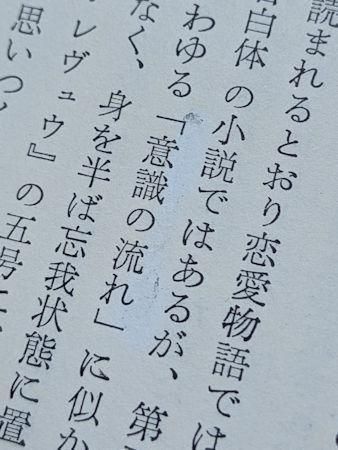 読まれるとおり恋愛物語では
白体の小説ではあるが、第
わゆる「意識の流れ」に似か
なく、身を半ば忘我状態に置
レヴュウ』の五号
思いつ